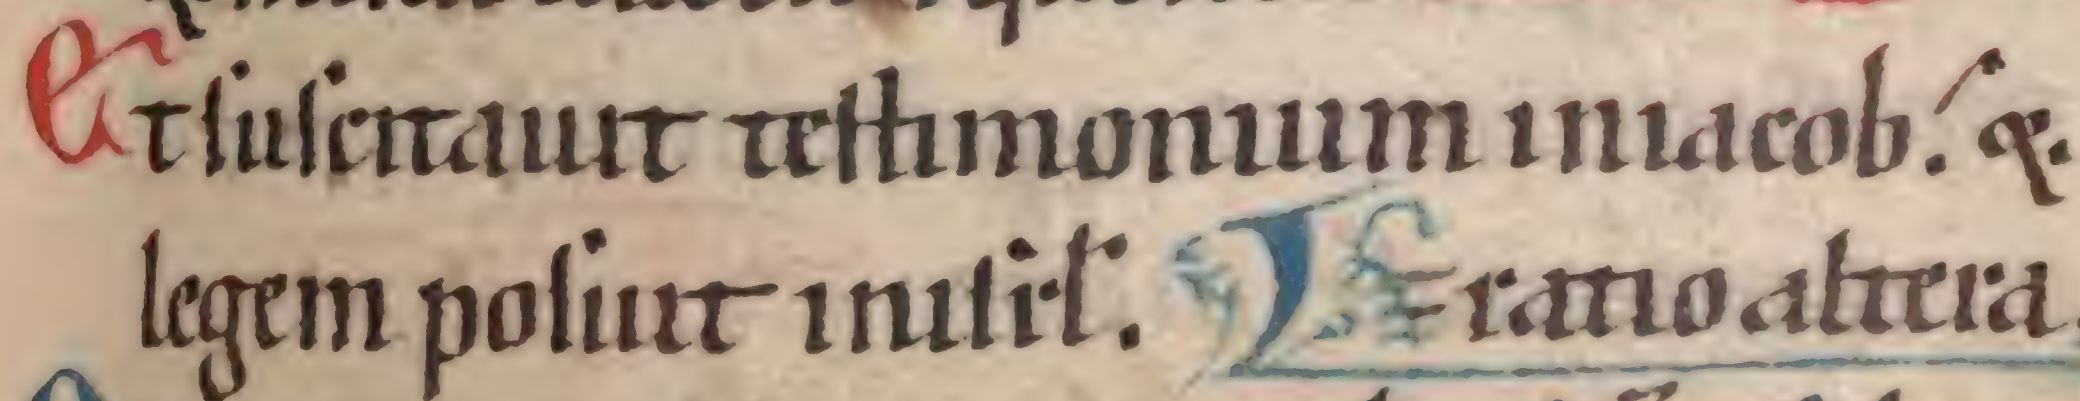 Et suscitauit testimonium iniacob: &
legem posuit inisrl. ratio altera